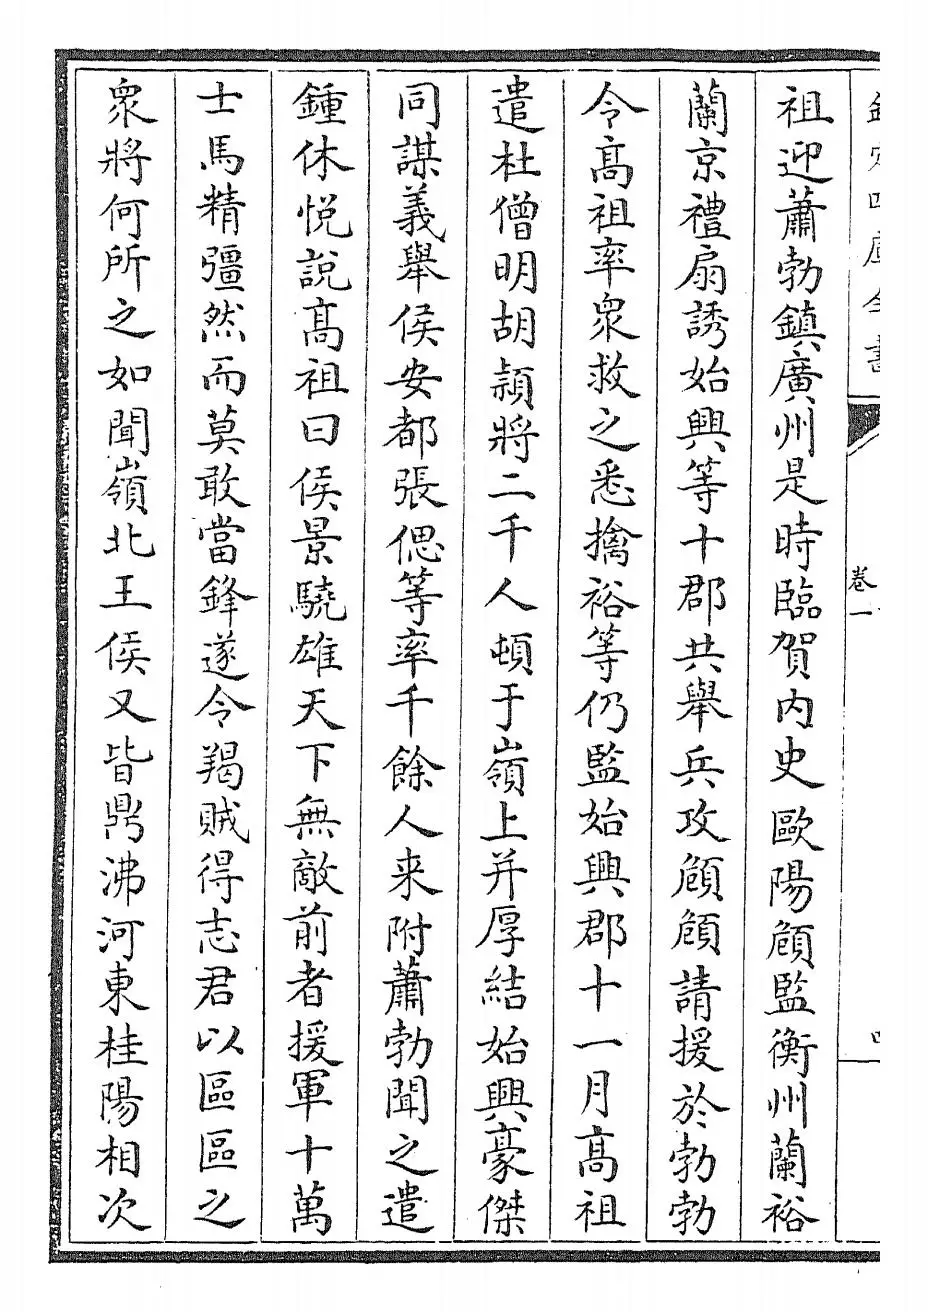 欽定四庫全書
卷一
祖迎蕭勃鎮廣州是時臨賀内史歐陽頠監衡州蘭裕
蘭京禮扇誘始興等十郡共舉兵攻頠頠請援於勃勃
令髙祖率衆救之悉擒裕等仍監始興郡十一月髙祖
遣杜僧明胡穎將二千人頓于嶺上并厚結始興豪傑
同謀義舉侯安都張偲等率千餘人来附蕭勃聞之遣
鍾休悦說髙祖曰侯景驍雄天下無敵前者援軍十萬
士馬精彊然而莫敢當鋒遂令羯賊得志君以區區之
衆將何所之如聞嶺北王侯又皆鼎沸河東桂陽相次